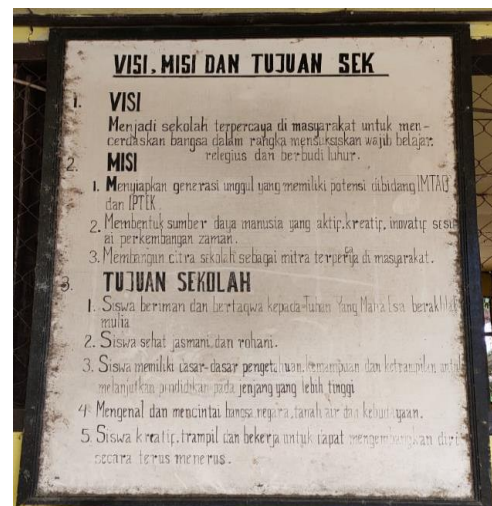 VISI, MISI DAN TUJUAN SEK
1. VISI
Menjadi sekolah terpercaya di masyarakat untuk men-
cerdaskan bangsa dalam rangka mensuksiskan wajib belajar.
relegius dan berbudi luhur.
2. MISI
1. Menyiapkan generasi unggul yang memiliki potensi dibidang IMTAQ
dan IPTEK.
2. Membentuk sumber daya manusia yang aktif.kreatif, inovatif sesu
ai perkembangan zaman.
3. Membangun citra sekolah sebagai mitra di masyarakat.
3. TUJUAN SEKOLAH
1. Siswa beriman dan bertaqwa kepada Tuhan Yang Maha Esa berakhlak
mulia
2. Siswa sehat jasmani dan rohani.
3. Siswa memiliki dasar-dasar pengetahuan, kemampuan dan ketrampilan untuk
melanjutkan pendidikan pada jenjang yang lebih tinggi
4. Mengenal dan mencintai bangsa, negara, tanah air dan kebudayaan.
5. Siswa kreatif, trampil dan bekerja untuk dapat mengembangkan diri
secara terus menerus.